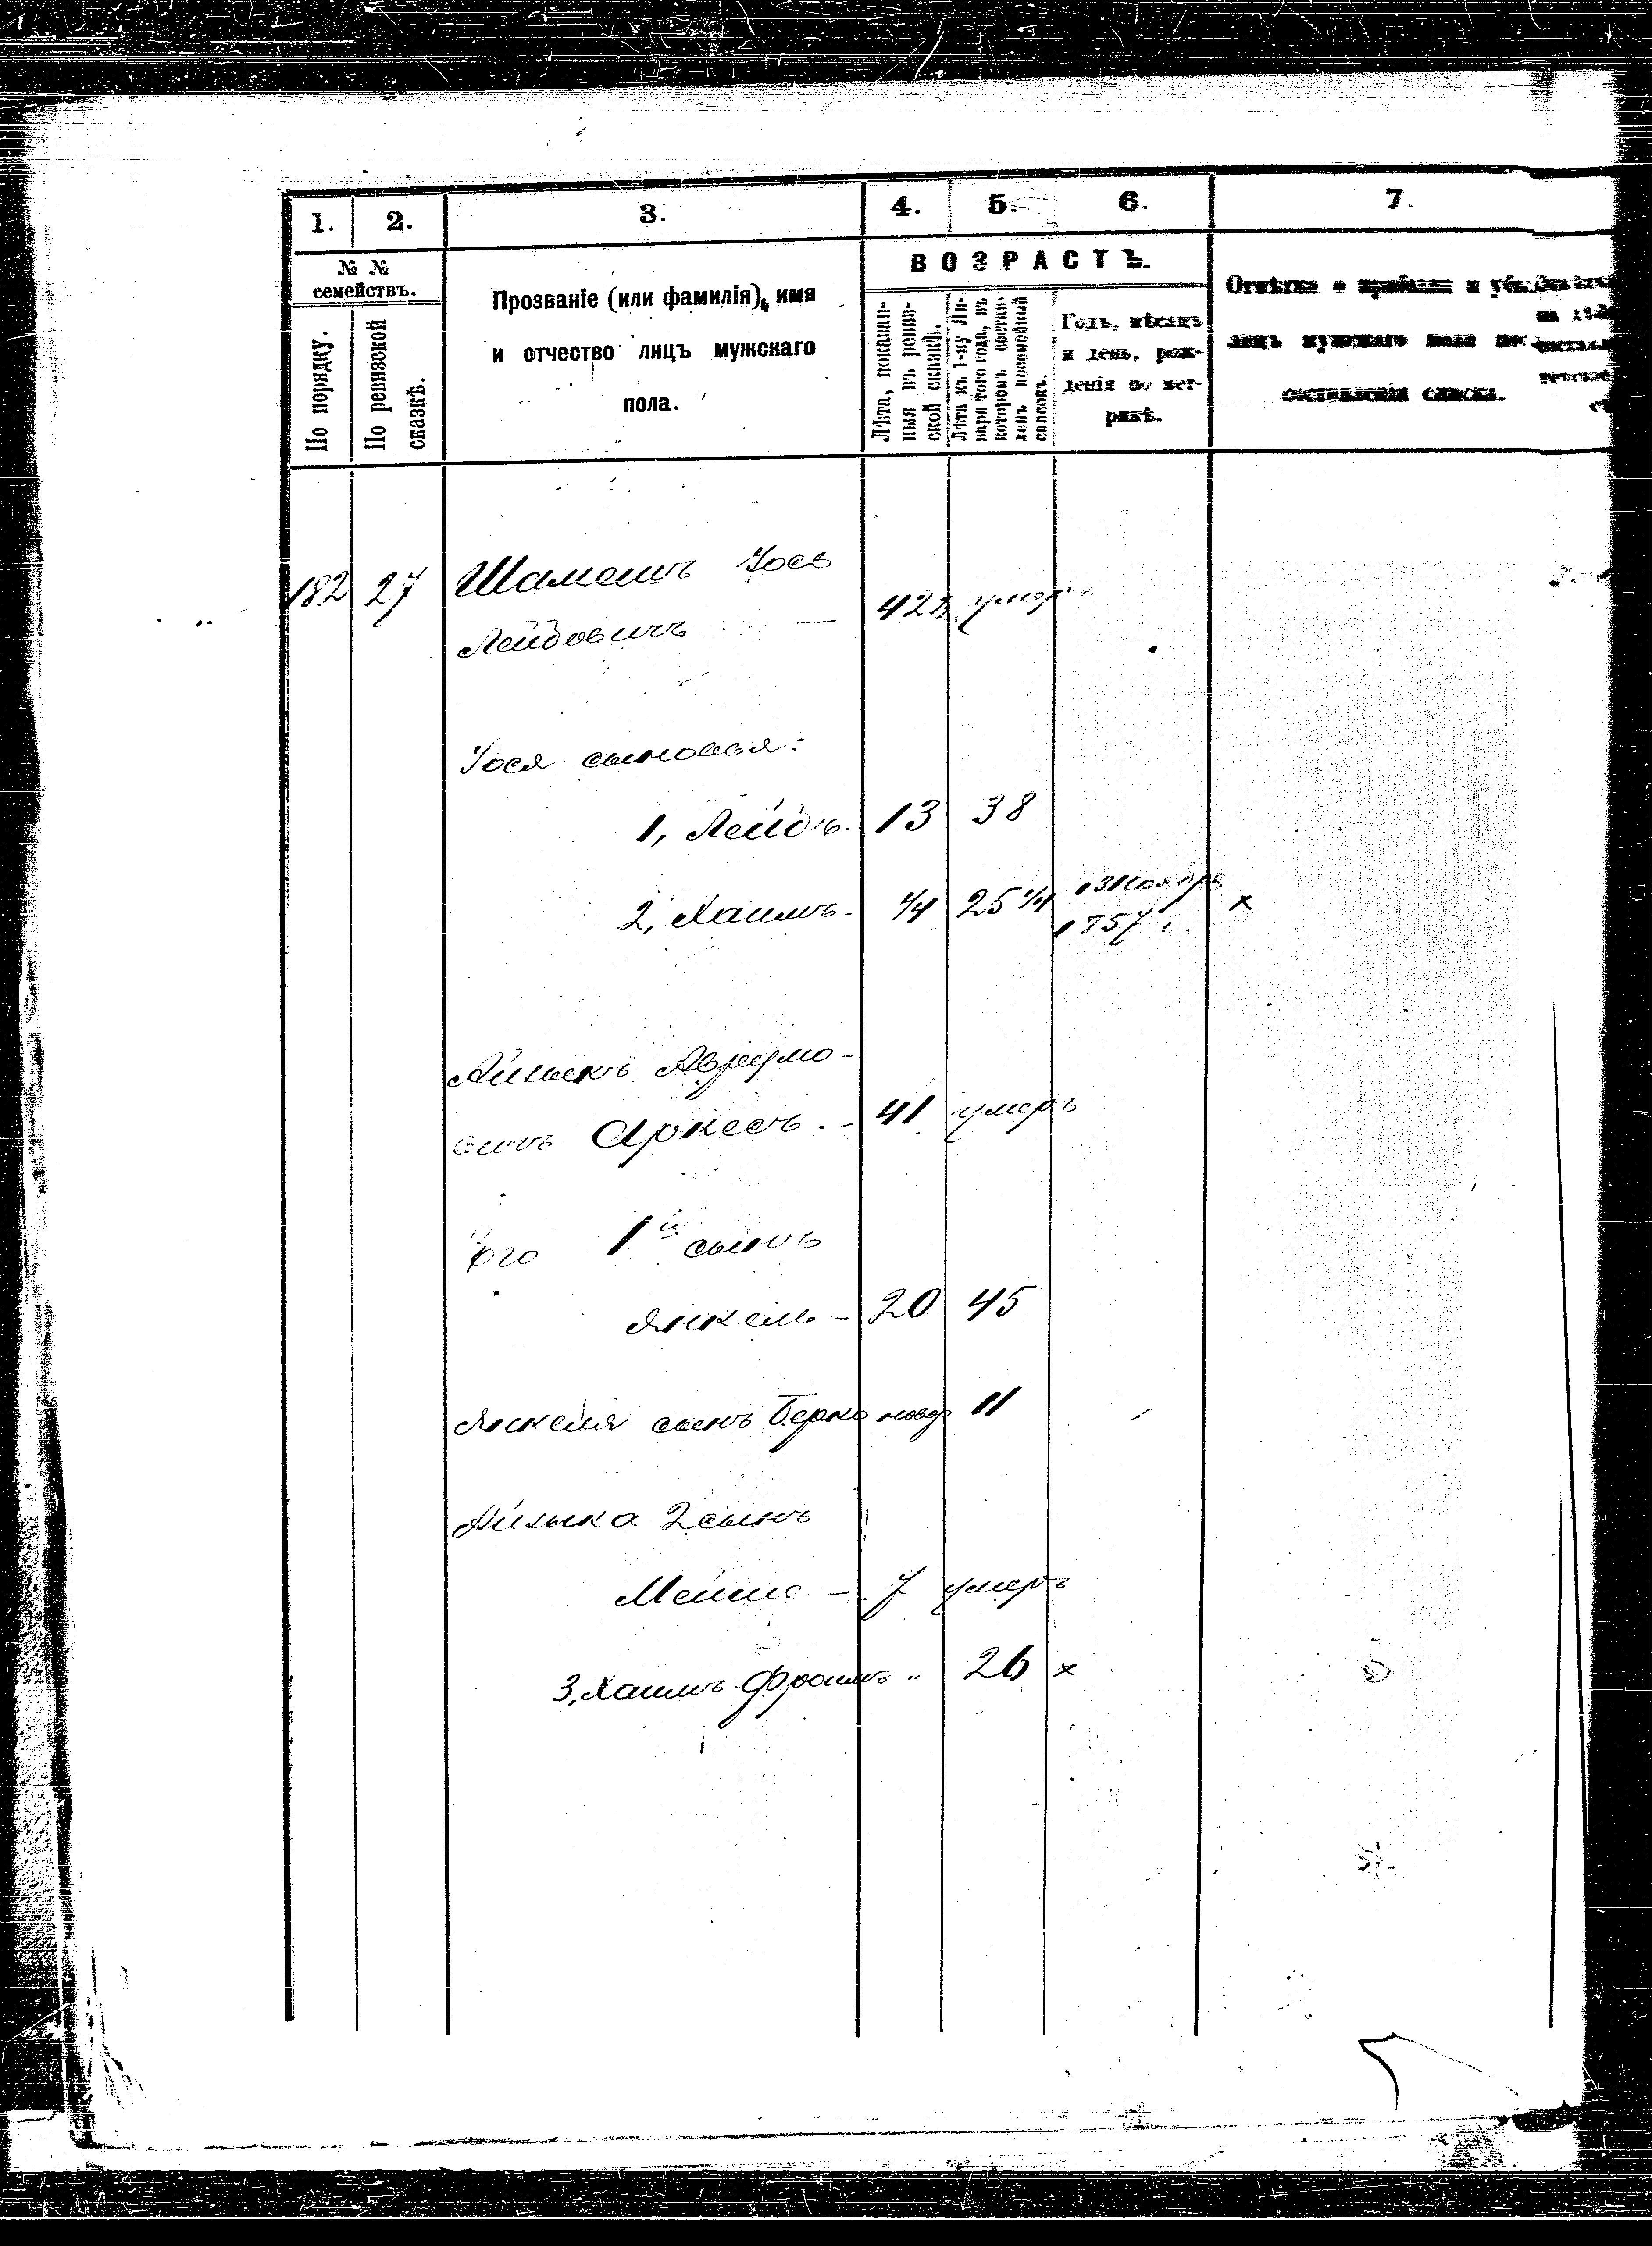 1. 2. 3. 4. 5. 6. 7.
№ №
семействъ.
По порядку.
По ревизской
сказкѣ.
Прозваніе (или фамилія), имя
и отчество лицъ мужскаго
пола.
ВОЗРАСТЪ.
Лѣта, показан-
ныя въ ревиз-
ской сказкѣ.
Лѣта къ 1-му Ян-
варя того года, въ
которомъ состав-
ленъ посемейный
списокъ.
Годъ, мѣсяцъ
и день, рож-
денія по мет-
рикѣ.
Отмѣтка о прибыли и
лицъ мужскаго пола по
составленія списка.
182 27 Шамешъ Іось
Лейбовичъ — 42 умеръ
Іося сыновья:
1, Лейбъ. 13 38
2, Хаимъ. 1/4 25 1/4 13 Ноября x
1857
Айзыкъ Аврумо-
вичъ Аркесъ. - 41 умеръ
Его 1й сынъ
Янкель - 20 45
Янкеля сынъ Берко новор 11
Айзыка 2 сынъ
- 7 умеръ
3, Хаимъ-Фроимъ „ 26 x